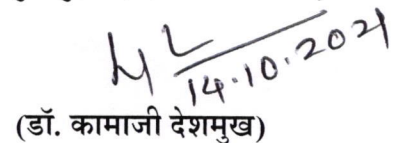 14.10.2021
(डॉ. कामाजी देशमुख)